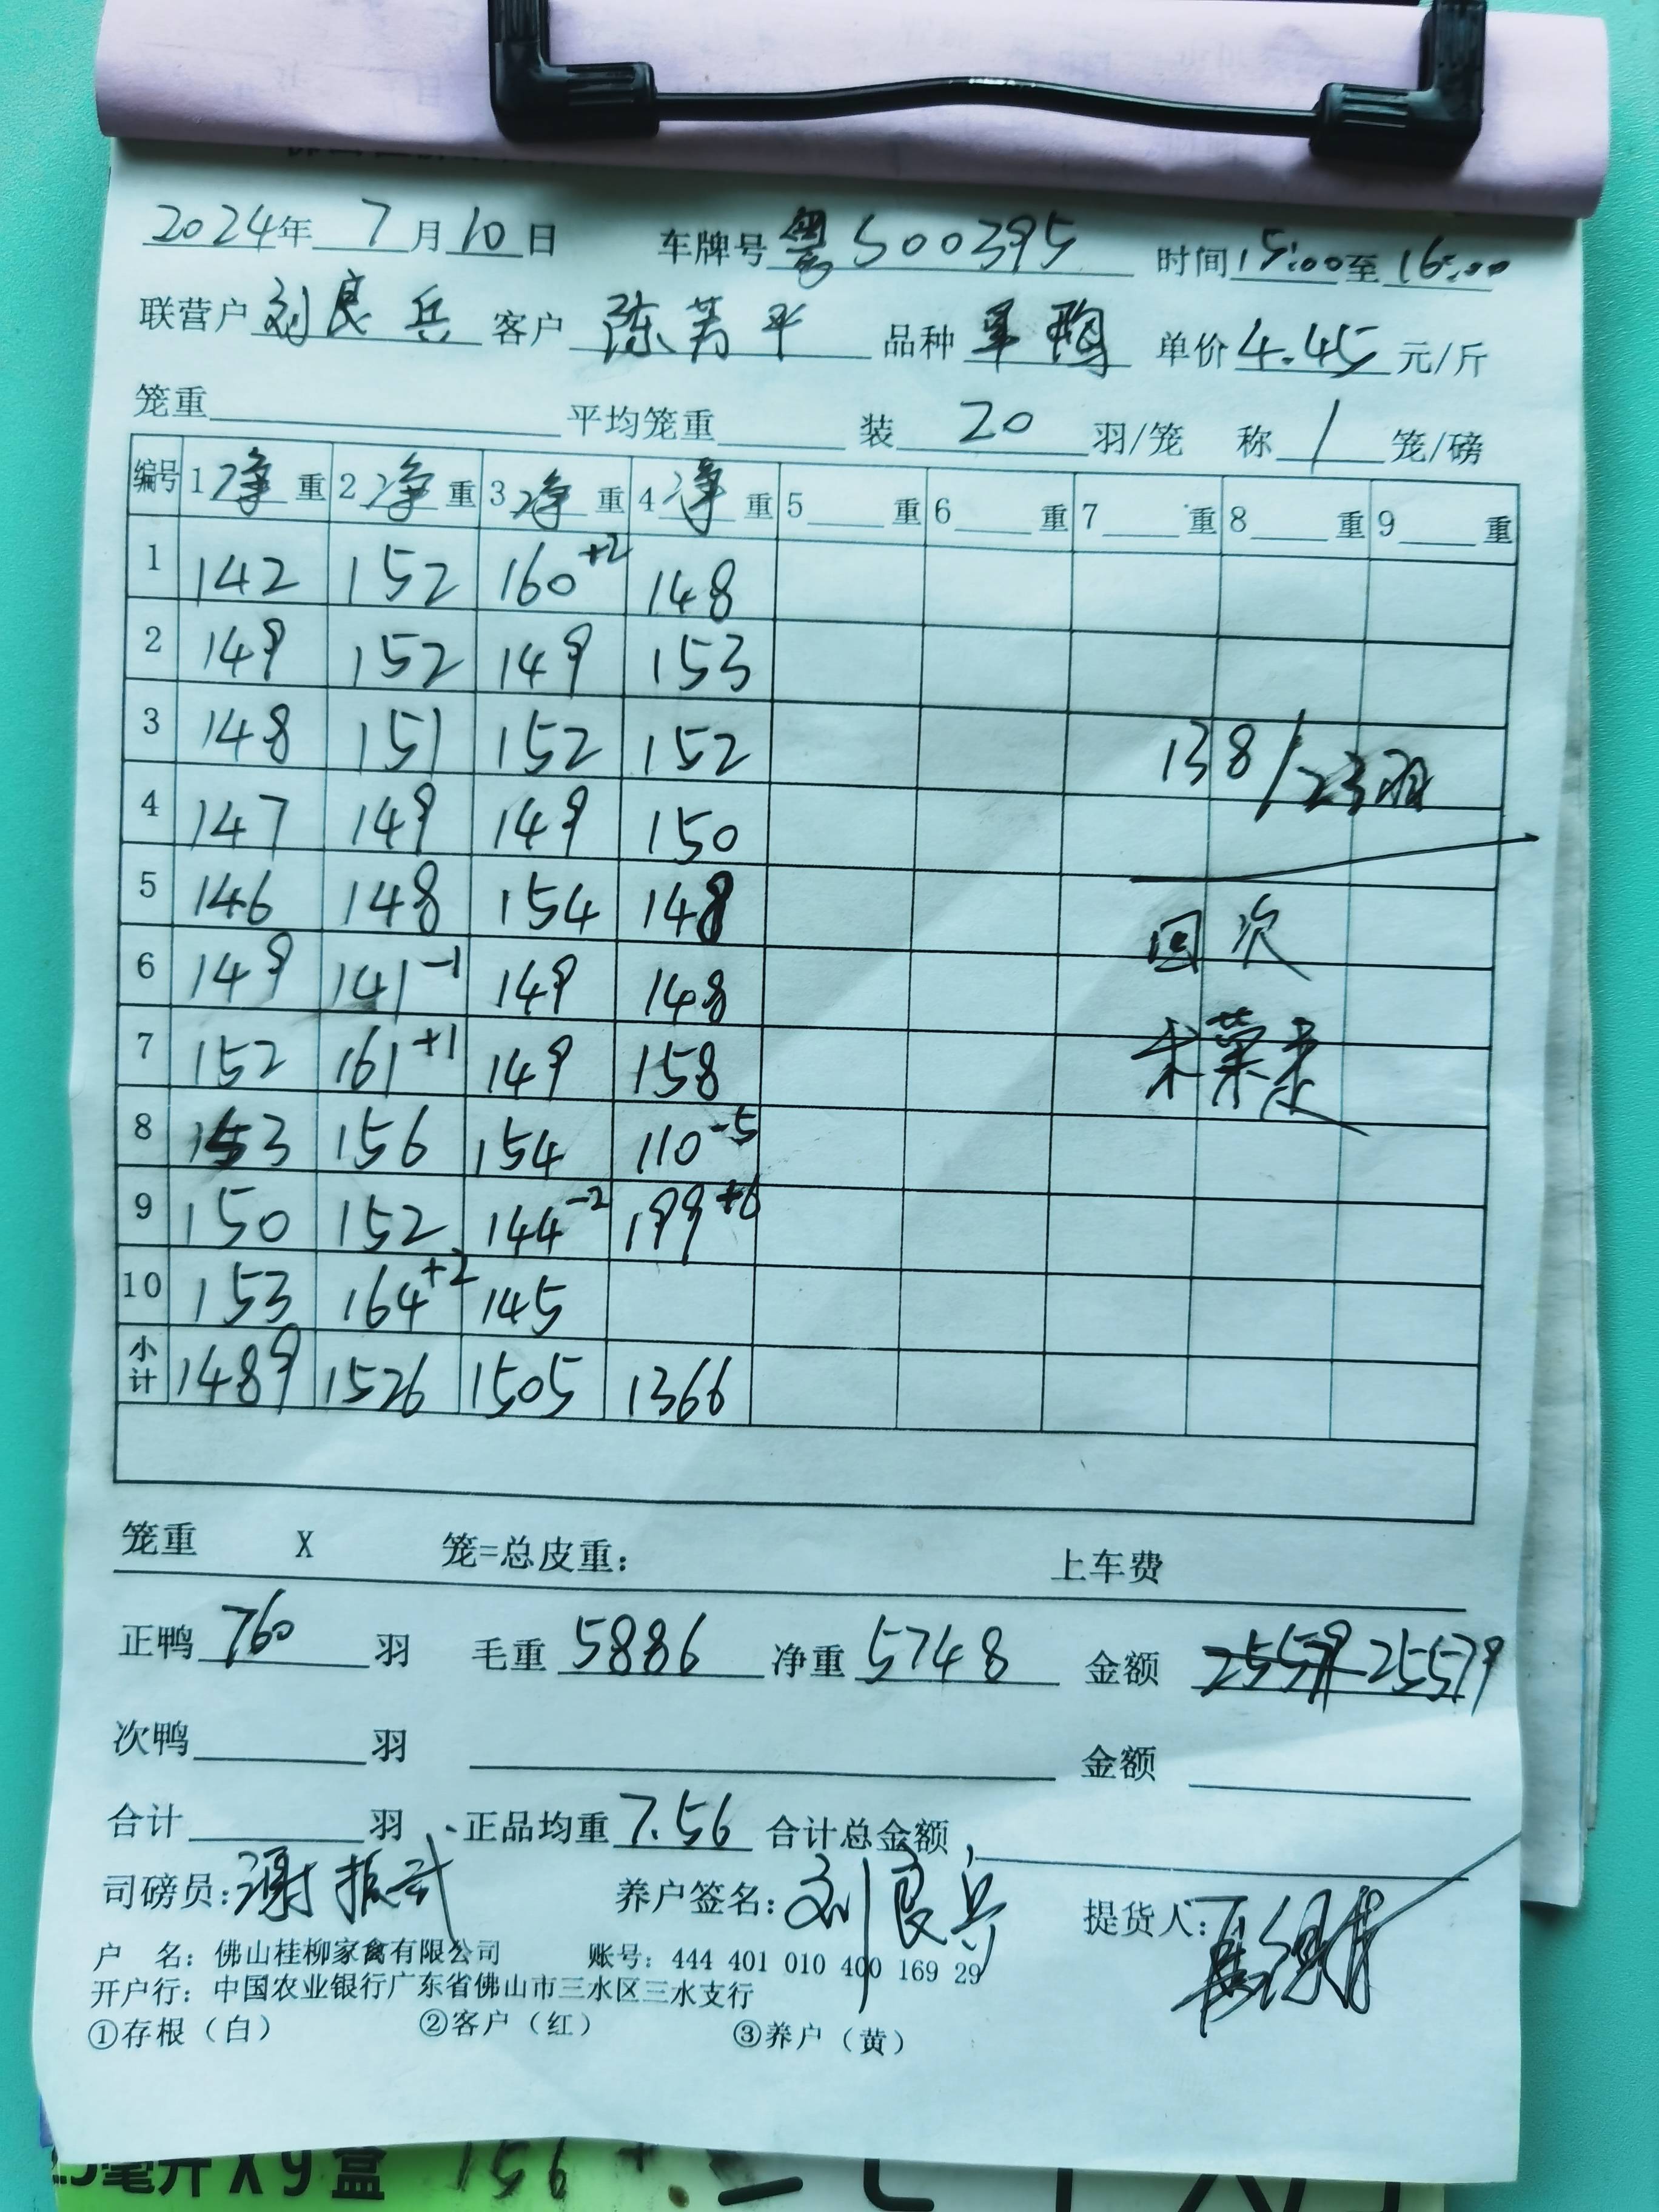 2024年 7月10日 车牌号 粤S00395 时间15:00至16:00
联营户 刘良兵 客户 陈芳平 品种 单价4.45元/斤
笼重 平均笼重 装 20 羽/笼 称 1 笼/磅
编号 1净重 2净重 3净重 4净重 5 重 6 重 7 重 8 重 9 重
1 142 152 160+2 148
2 149 152 149 153
3 148 151 152 152
138/23羽
4 147 149 149 150
5 146 148 154 148
回次
6 149 141-1 149 148
7 152 161+1 149 158
8 153 156 154 110-5
9 150 152 144-2 199+6
10 153 164+2 145
小计 1489 1526 1505 1366
笼重 X 笼=总皮重: 上车费
正鸭 760 羽 毛重 5886 净重 5748 金额 25579 25579
次鸭 羽 金额
合计 羽 正品均重 7.56 合计总金额
司磅员: 谢振 养户签名: 刘良兵 提货人:
户 名: 佛山桂柳家禽有限公司 账号: 444 401 010 400 169 29
开户行: 中国农业银行广东省佛山市三水区三水支行
①存根（白） ②客户（红） ③养户（黄）
毫升X9盒 156+